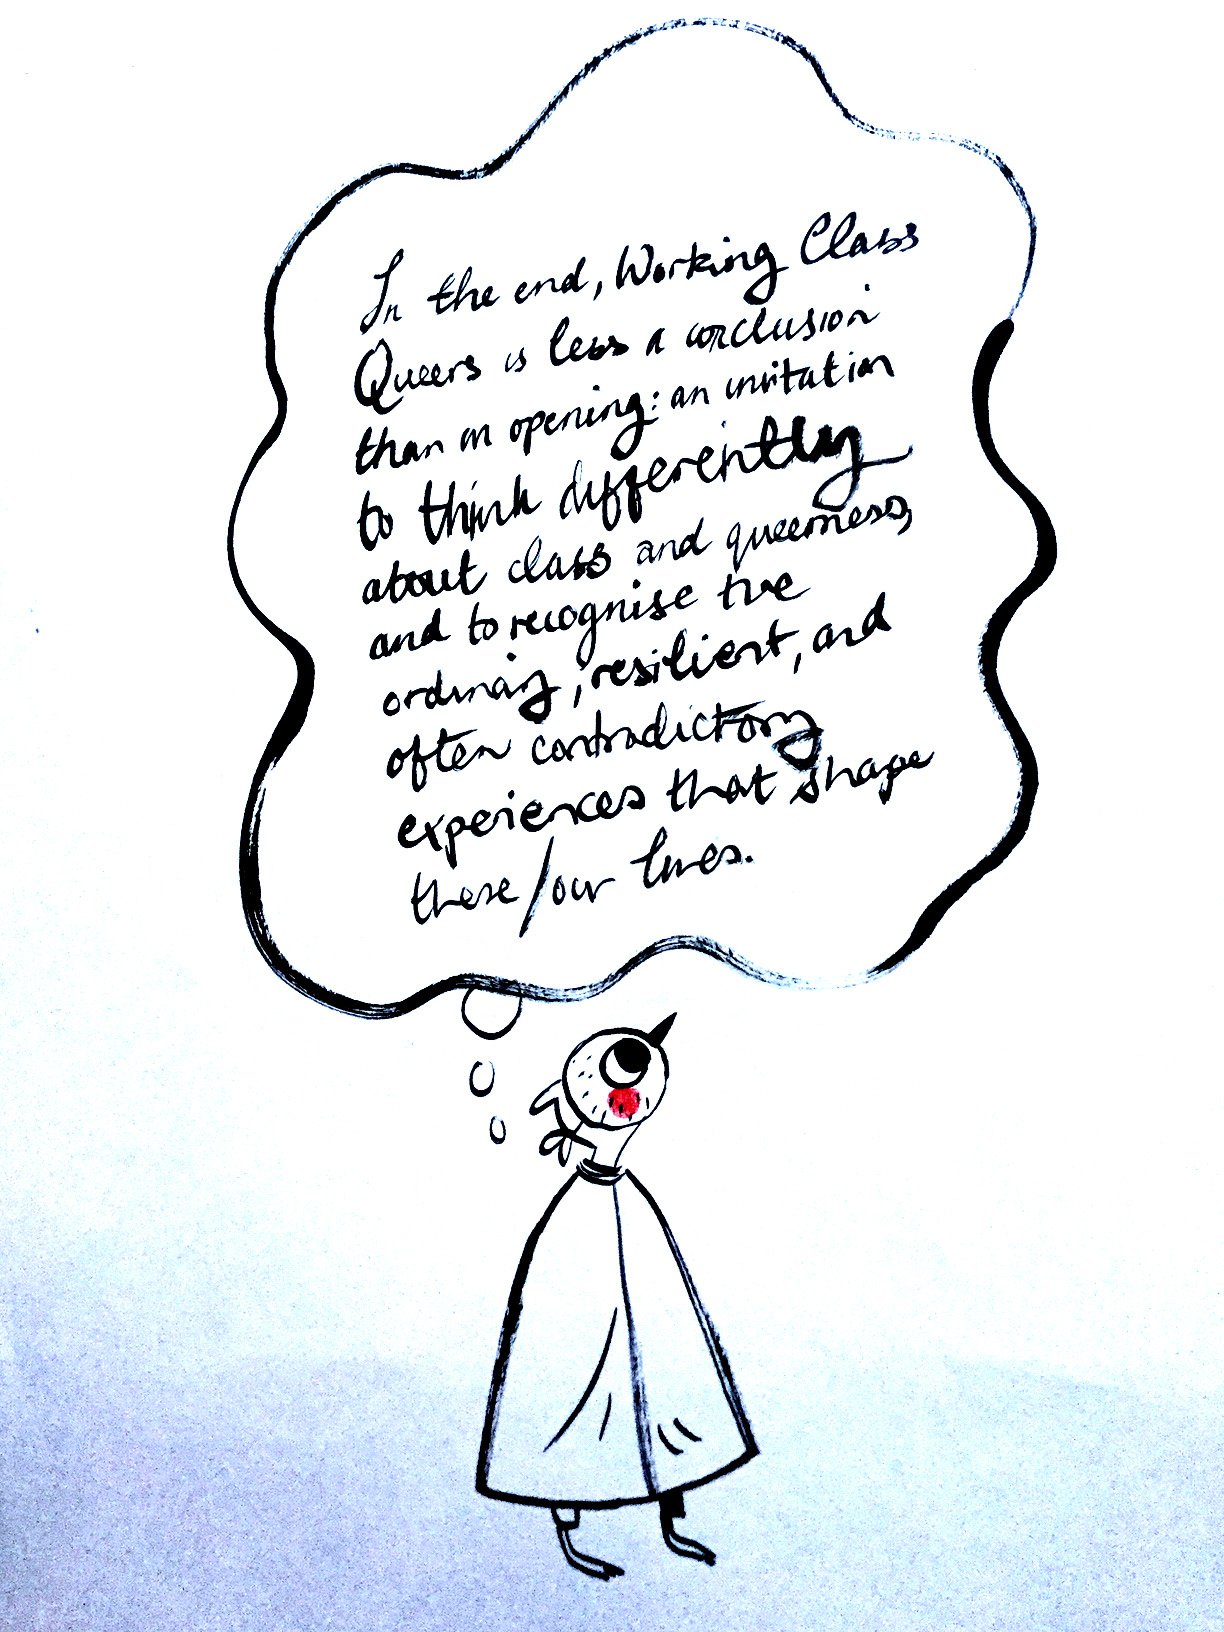 In the end, Working Class
Queers is less a conclusion
than an opening: an invitation
to think differently
about class and queerness,
and to recognise the
ordinary, resilient, and
often contradictory
experiences that shape
these/our lives.